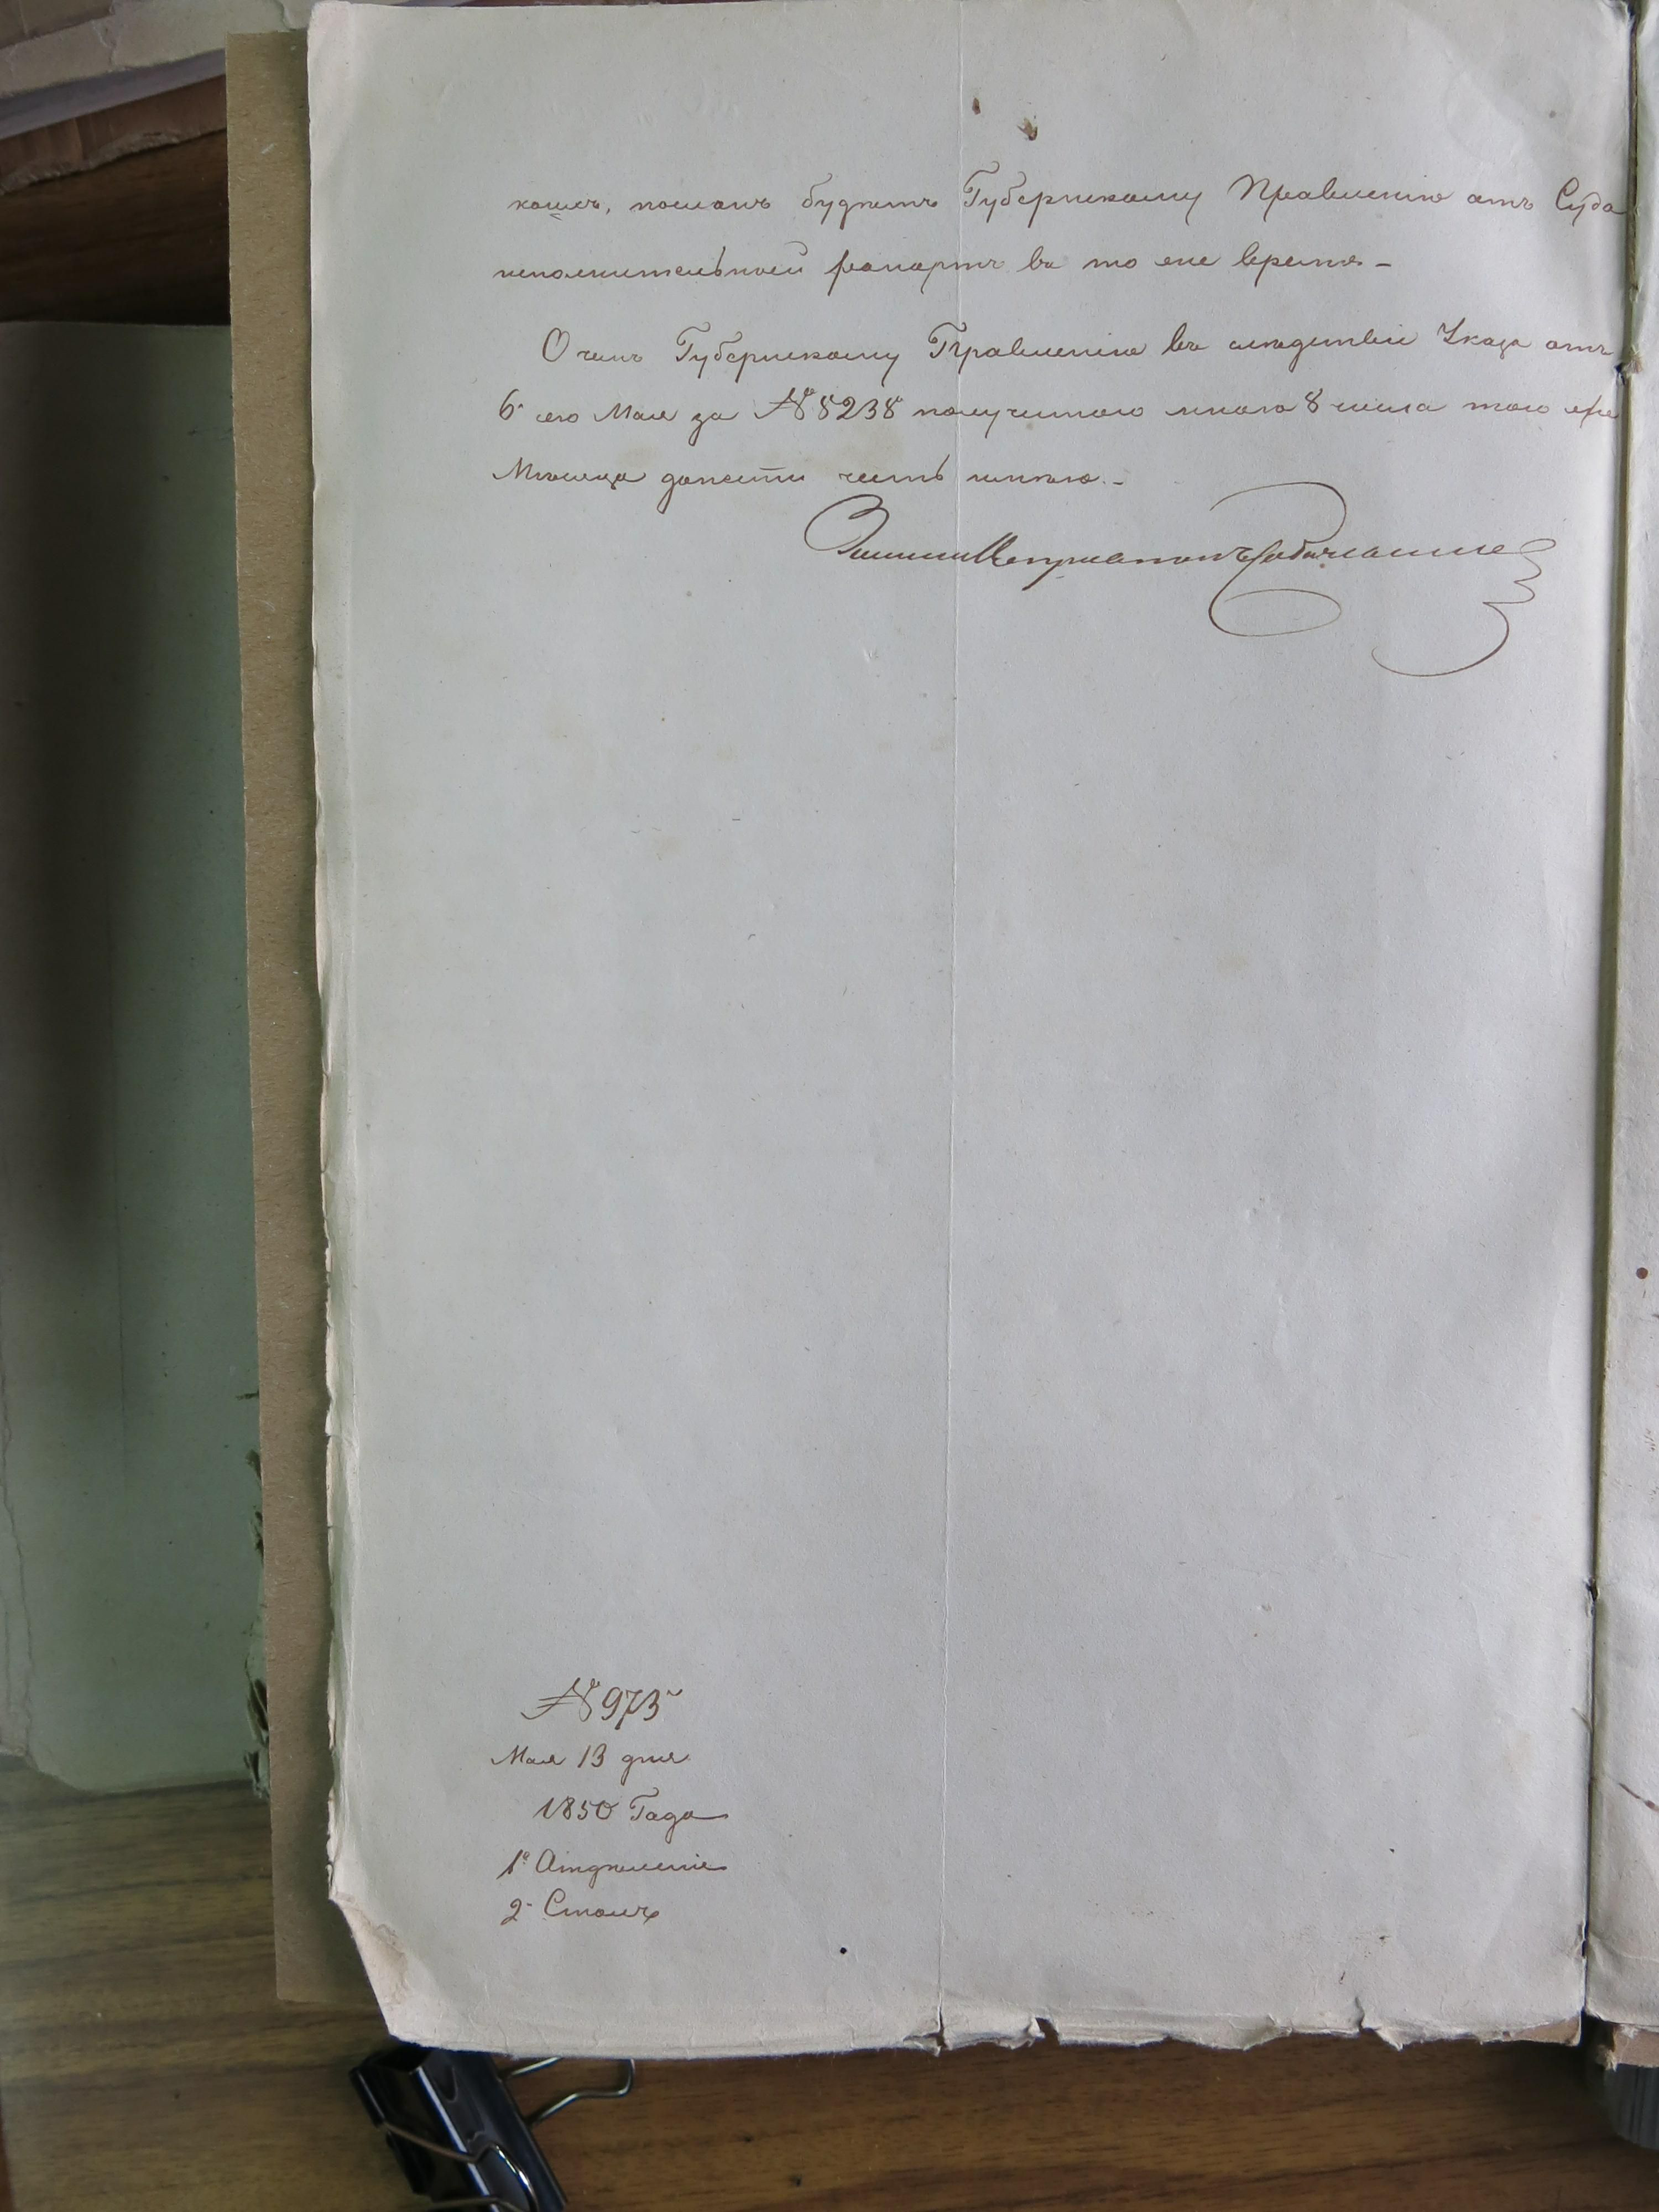 посланъ будетъ Губернскому Правленію отъ Суда
исполнительной рапортъ въ то же время –
О чемъ Губернскому Правленію въ слѣдствіе Указа отъ
6 сего Мая за № 8238 полученного мною 8 числа того же
Мѣсяца донести честь имѣю. –
№ 973
Мая 13 дня
1850 Года
1е Отдѣленіе
2 Столъ